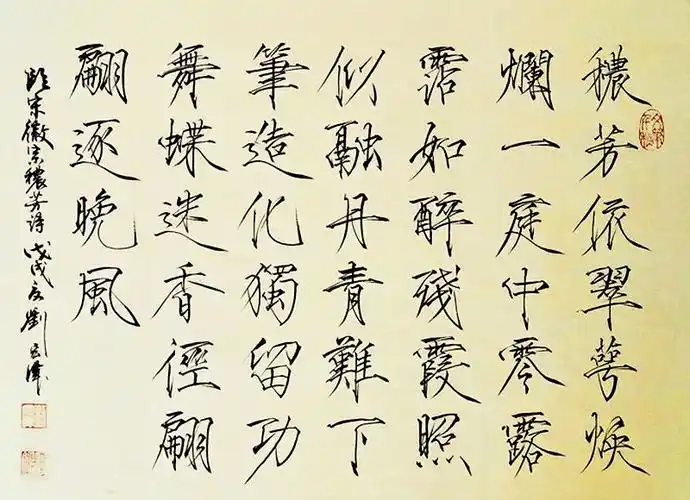 穠芳依翠萼煥
爛一庭仲零露
霑如醉殘霞照
似融丹青難下
筆造化獨留功
舞蝶迷香徑翩
翩逐晚風
臨宋徽宗穠芳詩 戊戌 劉